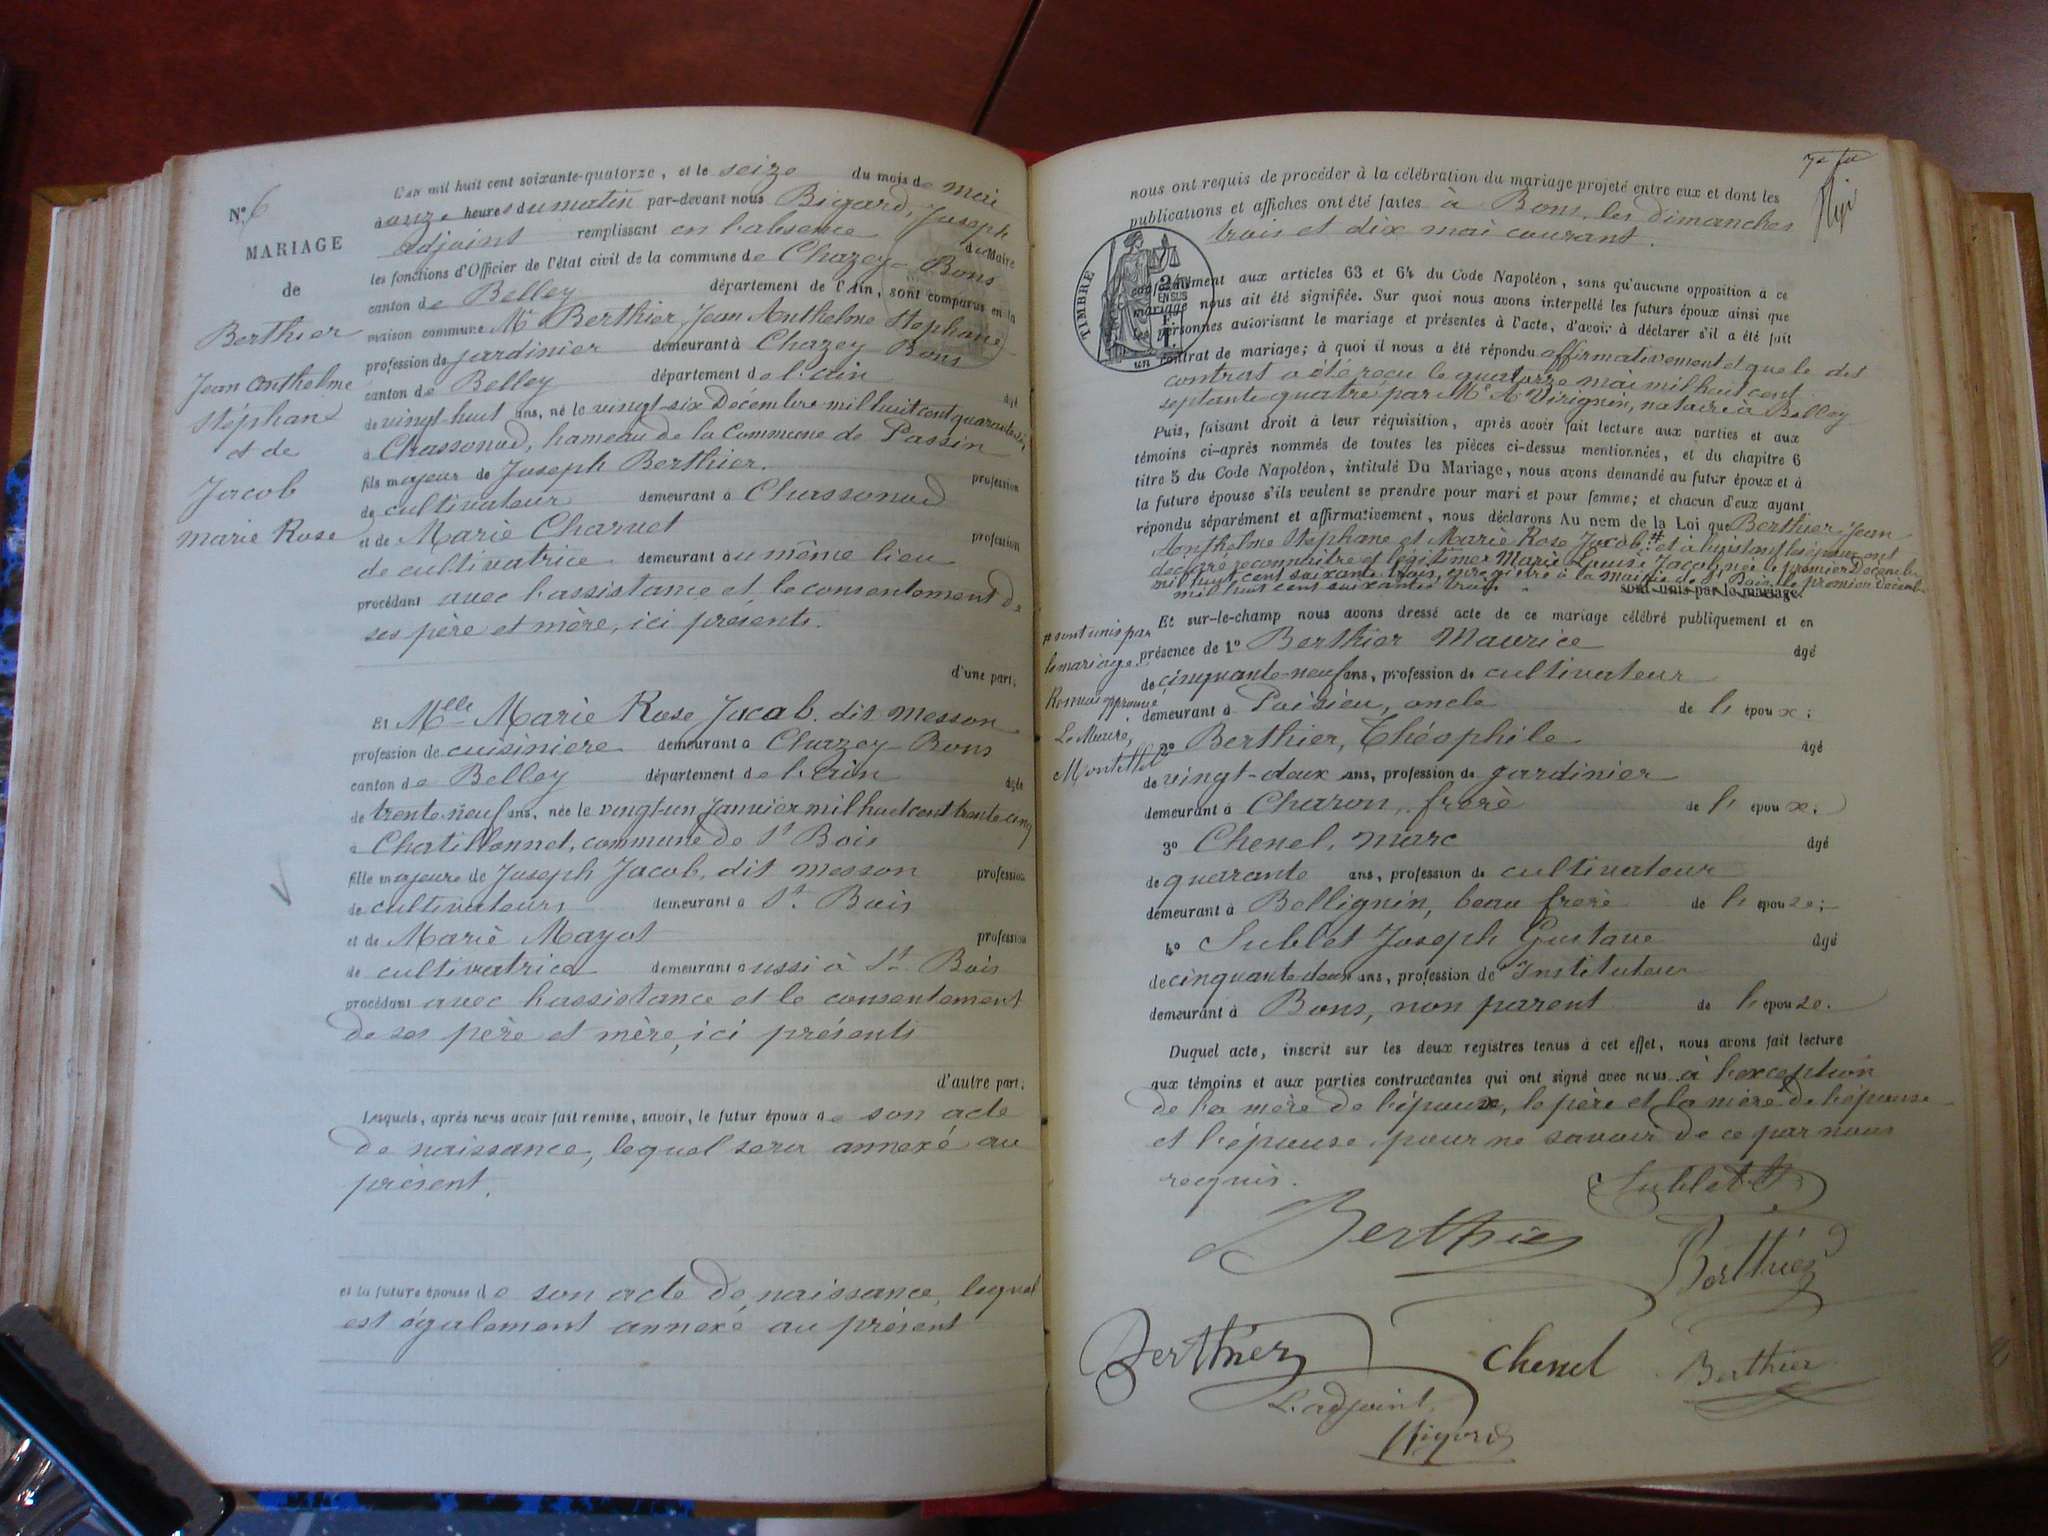 N° 6
MARIAGE
de
Berthier
Jean Anthelme
Stéphane
et de
Jacob
Marie Rose
L'an mil huit cent soixante-quatorze, et le seize du mois de mai
à onze heures du matin par-devant nous Bigard, Joseph
adjoint remplissant en l'absence du Maire
les fonctions d'Officier de l'état civil de la commune de Chazey-Bons
canton de Belley département de l'Ain, sont comparus en la
maison commune Mr Berthier, Jean Anthelme Stéphane
profession de jardinier demeurant à Chazey-Bons
canton de Belley département de l'ain âgé
de vingt-huit ans, né le vingt-six Decembre mil huit cent quarante
à Chassonod, hameau de la Commune de Passin
fils majeur de Joseph Berthier. profession
de cultivateur demeurant à Chassonod
et de Marie Charvet profession
de cultivatrice demeurant au même lieu
procédant avec l'assistance et le consentement de
ses père et mère, ici présents.
d'une part,
Et Mlle Marie Rose Jacob. dit Messon
profession de cuisiniere demeurant à Chazey-Bons
canton de Belley département de l'ain âgée
de trente-neuf ans, née le vingt-un Janvier mil huit cent trente cinq
à Chatillonnet, commune de St Bois
fille majeure de Joseph Jacob, dit messon profession
de cultivateur, demeurant à St. Bois
et de Marie Mayot profession
de cultivatrice demeurant aussi à St. Bois
procédant avec l'assistance et le consentement
de ses père et mère, ici présents
d'autre part;
Lesquels, après nous avoir fait remise, savoir, le futur époux de son acte
de naissance, lequel sera annexé au
présent.
et la future épouse de son acte de naissance, lequel
est également annexé au présent
nous ont requis de procéder à la célébration du mariage projeté entre eux et dont les
publications et affiches ont été faites à Bons, les dimanches
trois et dix mai courant.
TIMBRE
2/10
EN SUS
1 F.
UN
conformément aux articles 63 et 64 du Code Napoléon, sans qu'aucune opposition à ce
mariage nous ait été signifiée. Sur quoi nous avons interpellé les futurs époux ainsi que
les personnes autorisant le mariage et présentes à l'acte, d'avoir à déclarer s'il a été fait
contrat de mariage; à quoi il nous a été répondu affirmativement et que le dit
contrat a été reçu le quatorze mai mil huit cent
septante-quatre par Me A Virignin, notaire à Belley
Puis, faisant droit à leur réquisition, après avoir fait lecture aux parties et aux
témoins ci-après nommés de toutes les pièces ci-dessus mentionnées, et du chapitre 6
titre 5 du Code Napoléon, intitulé Du Mariage, nous avons demandé au futur époux et à
la future épouse s'ils veulent se prendre pour mari et pour femme; et chacun d'eux ayant
répondu séparément et affirmativement, nous déclarons Au nom de la Loi que Berthier, Jean
Anthelme Stéphane et Marie Rose Jacob # et à l'instant les époux ont
déclaré reconnaître et légitimer Marie Louise Jacob, née le premier Décembre
mil huit cent soixante trois, enregistré à la Mairie de St Bois le premier Décembre
mil huit cent soixante trois. sont unis par le mariage.
# sont unis par
le mariage.
Renvoi approuvé
Le Maire,
Et sur-le-champ nous avons dressé acte de ce mariage célébré publiquement et en
présence de 1° Berthier Maurice âgé
de cinquante-neuf ans, profession de cultivateur
demeurant à Poisieu, oncle de l'époux;
2° Berthier, Théophile âgé
de vingt-deux ans, profession de jardinier
demeurant à Charon, frère de l'époux;
3° Chenel, Marc âgé
de quarante ans, profession de cultivateur
demeurant à Bellignin, beau frère de l'épouse;
4° Sublet Joseph Gustave âgé
de cinquante-deux ans, profession de Instituteur
demeurant à Bons, non parent de l'épouse.
Duquel acte, inscrit sur les deux registres tenus à cet effet, nous avons fait lecture
aux témoins et aux parties contractantes qui ont signé avec nous à l'exception
de la mère de l'époux, le père et la mère de l'épouse
et l'épouse pour ne savoir de ce par nous
requis.
Sublet
Berthier
Berthier
Berthier
Chenel
Berthier
L'adjoint,
Bigard